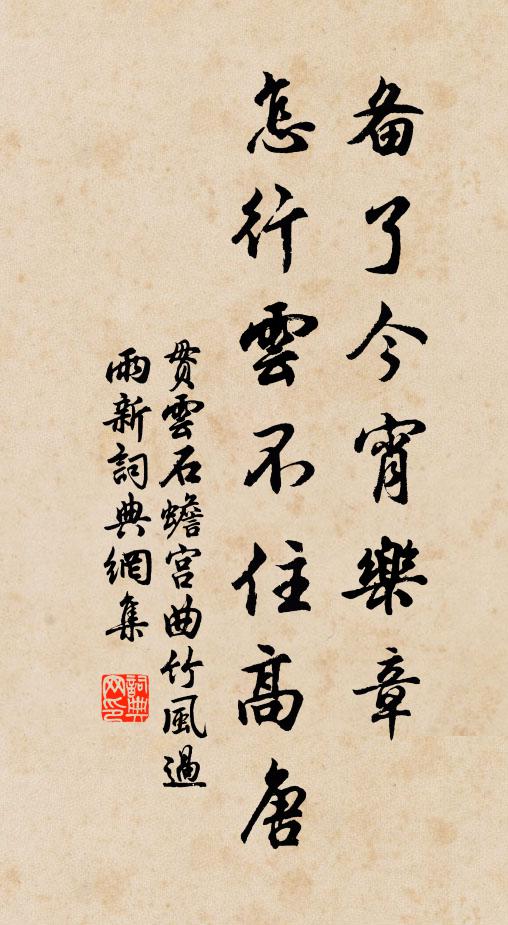 备了今宵樂章
怎行雲不住高唐
贯雲石蟾宫曲竹風過
雨新詞典網集
詞典网印